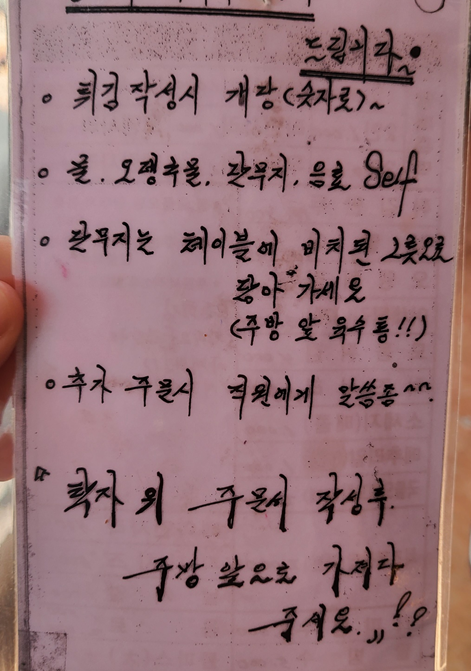 드립니다.~
• 튀김 작성시 개당(숫자로)~
• 물. 오뎅추물. 단무지. 음료 Self
• 단무지는 테이블에 비치된 그릇으로
담아 가세요
(주방 앞 육수통!!)
• 추가 주문시 직원에게 말씀좀~~.
탁자 위 주문서 작성후.
주방 앞으로 가져다
주세요.,,!?